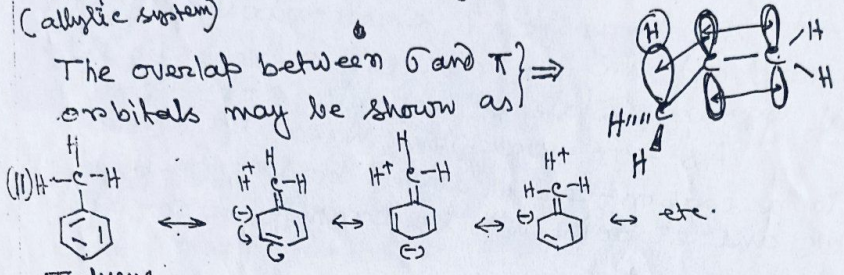 (allylic system)
The overlap between σ and π } ⇒
orbitals may be shown as
H
C — C
H
H
H
H
(II) H-C-H ↔ H+ C-H ↔ H+ C-H ↔ H-C-H ↔ etc.
H H H H+
(-) (-) (-)